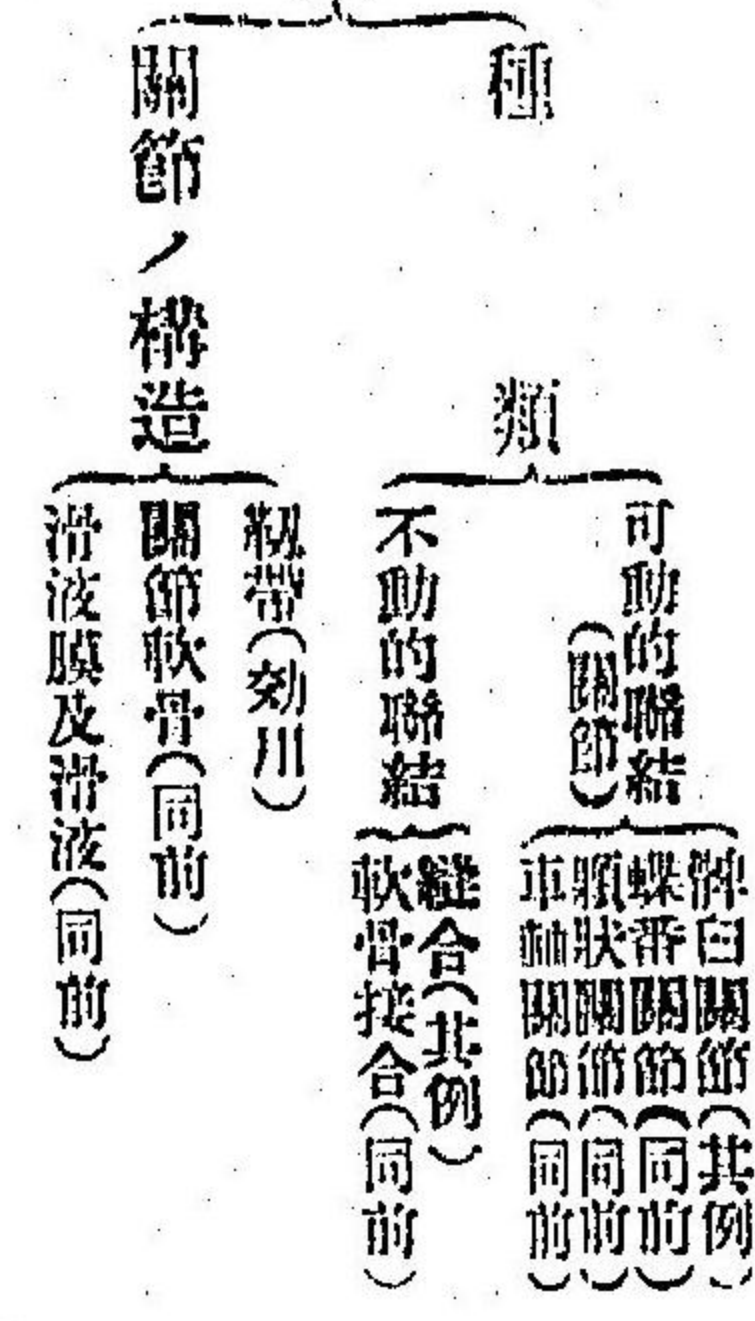 種類
可動的聯結
(關節)
髀臼關節(其例)
蝶番關節(同前)
顆狀關節(同前)
車軸關節(同前)
不動的聯結
縫合(其例)
軟骨接合(同前)
關節ノ構造
靱帶(効用)
關節軟骨(同前)
滑液膜及滑液(同前)